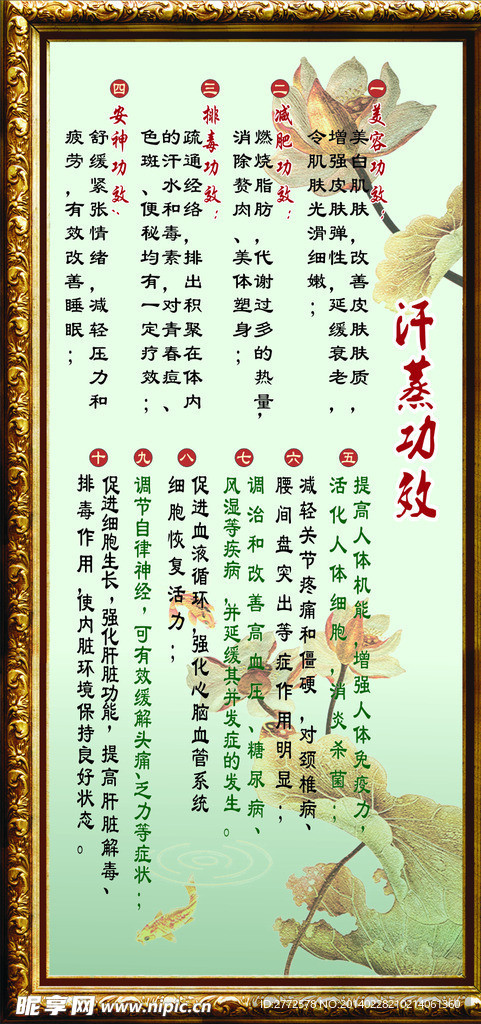 汗蒸功效
一
美容功效：
美白肌肤，改善皮肤肤质，
增强皮肤弹性，延缓衰老，
令肌肤光滑细嫩；
二
减肥功效：
燃烧脂肪，代谢过多的热量，
消除赘肉、美体塑身；
三
排毒功效：
疏通经络，排出积聚在体内
的汗水和毒素，对青春痘、
色斑、便秘均有一定疗效；
四
安神功效：
舒缓紧张情绪，减轻压力和
疲劳，有效改善睡眠；
五
提高人体机能，增强人体免疫力，
活化人体细胞，消炎杀菌；
六
减轻关节疼痛和僵硬，对颈椎病、
腰间盘突出等症作用明显；
七
调治和改善高血压、糖尿病、
风湿等疾病，并延缓其并发症的发生。
八
促进血液循环，强化心脑血管系统
细胞恢复活力；
九
调节自律神经，可有效缓解头痛、乏力等症状；
十
促进细胞生长，强化肝脏功能，提高肝脏解毒、
排毒作用，使内脏环境保持良好状态。
昵享网 www.nipic.cn
ID:2772578 NO:20140228210214061360